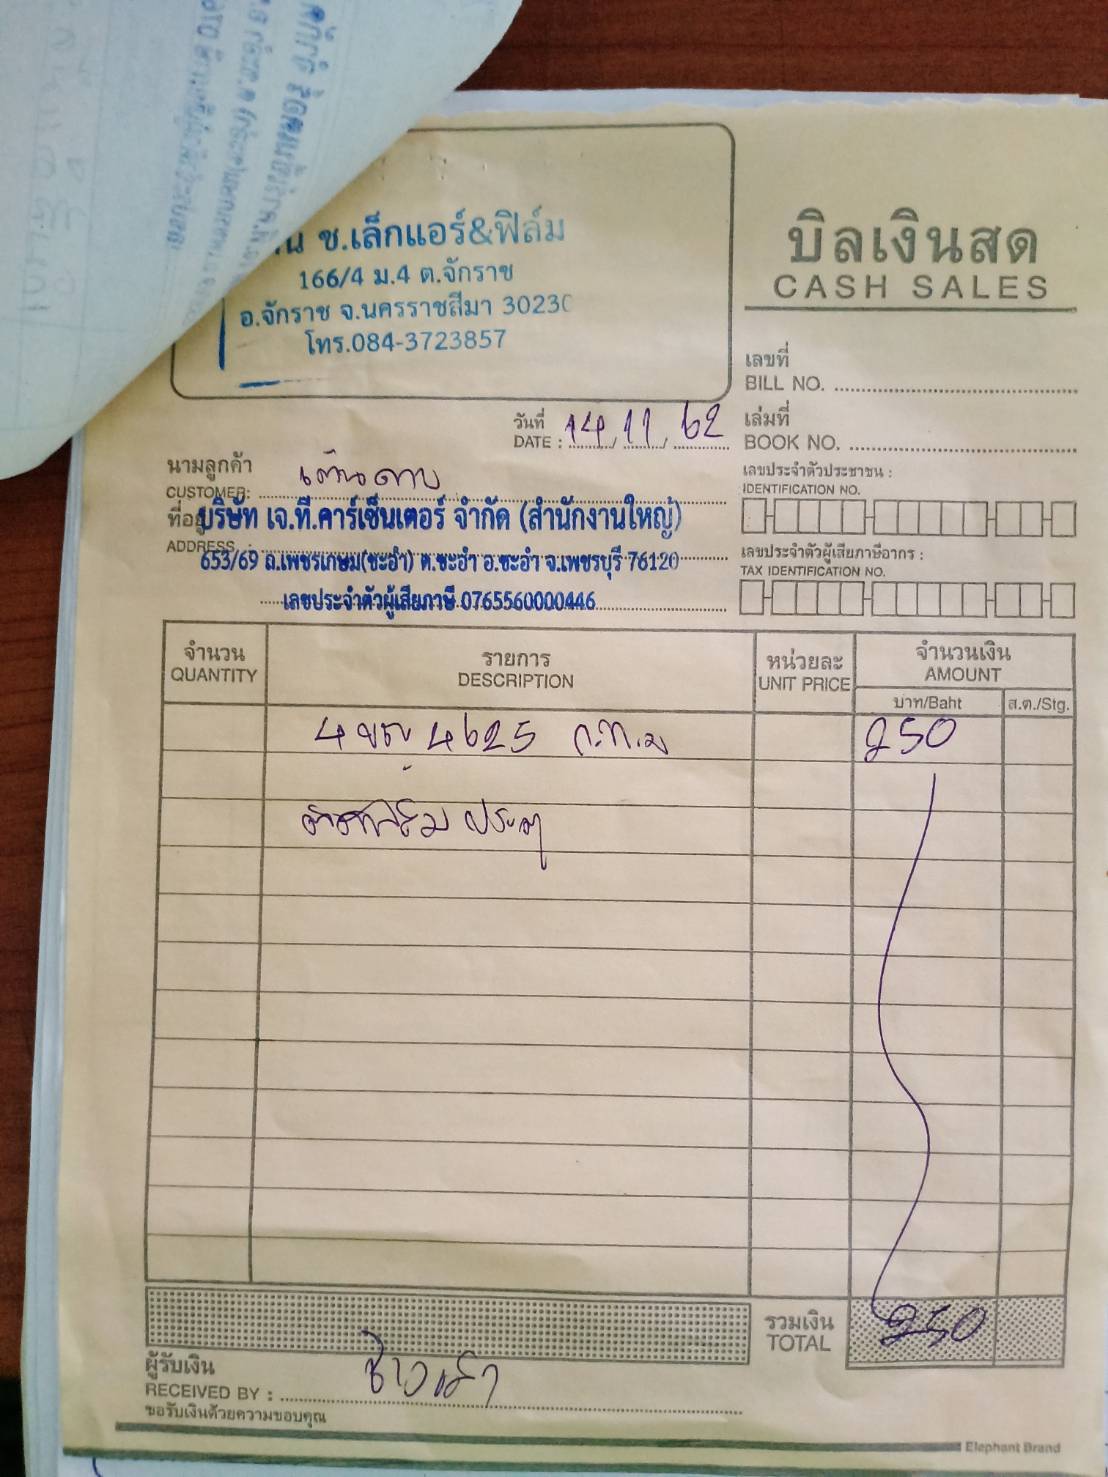 ช.เล็กแอร์&ฟิล์ม
166/4 ม.4 ต.จักราช
อ.จักราช จ.นครราชสีมา 30230
โทร.084-3723857
บิลเงินสด
CASH SALES
เลขที่
BILL NO.
วันที่
DATE : 14 / 11 / 62
เล่มที่
BOOK NO.
นามลูกค้า
CUSTOMER:
ADDRESS :
บริษัท เจ.ที.คาร์เซ็นเตอร์ จำกัด (สำนักงานใหญ่)
653/69 ถ.เพชรเกษม(ชะอำ) ต.ชะอำ อ.ชะอำ จ.เพชรบุรี 76120
เลขประจำตัวผู้เสียภาษี 0765560000446
เลขประจำตัวประชาชน :
IDENTIFICATION NO.
เลขประจำตัวผู้เสียภาษีอากร :
TAX IDENTIFICATION NO.
จำนวน รายการ หน่วยละ จำนวนเงิน
QUANTITY DESCRIPTION UNIT PRICE AMOUNT
บาท/Baht ส.ต./Stg.
4625 ก.ท.ม 250
ประตู
รวมเงิน
TOTAL 250
ผู้รับเงิน
RECEIVED BY :
ขอรับเงินด้วยความขอบคุณ
Elephant Brand